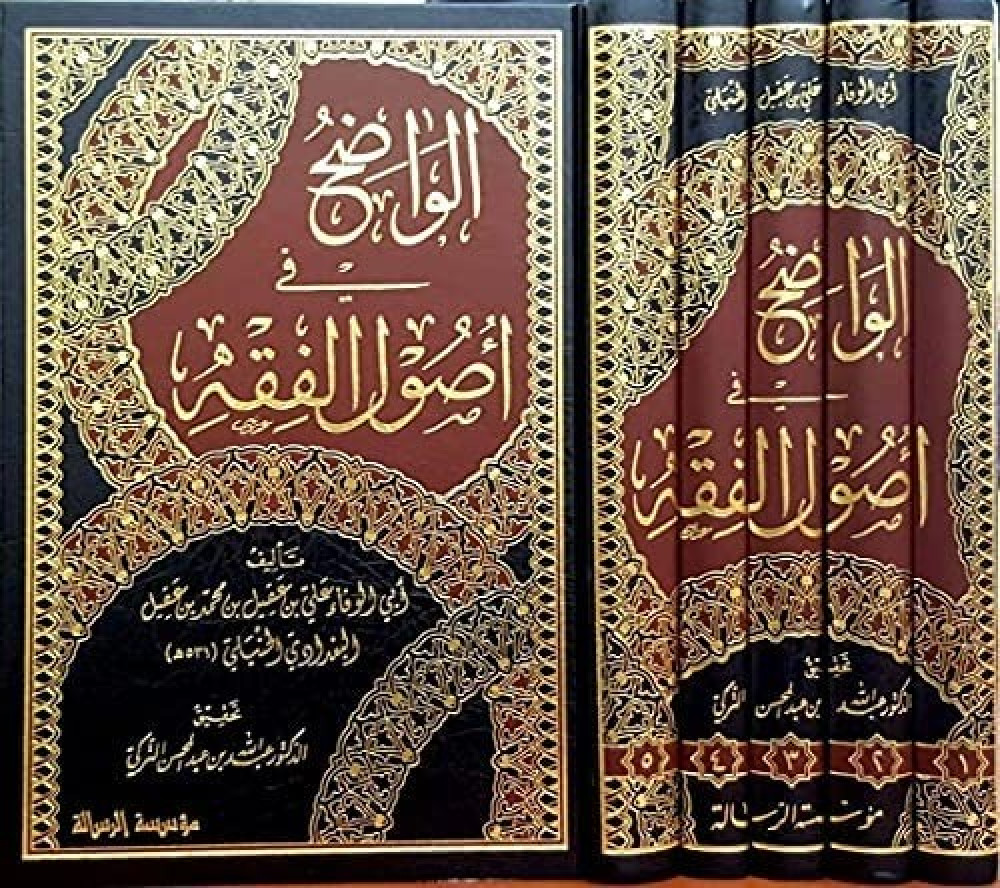 الوَاضِحُ
في
أُصُولِ الفِقْهِ
تأليف
أبي الوفاء علي بن عقيل بن محمد بن عقيل
البغدادي الحنبلي (٥١٣هـ)
تحقيق
الدكتور عبد الله بن عبد المحسن التركي
مؤسسة الرسالة
أبي الوفاء علي بن عقيل الحنبلي
الوَاضِحُ
في
أُصُولِ الفِقْهِ
تحقيق
الدكتور عبد الله بن عبد المحسن التركي
١ ٢ ٣ ٤ ٥
مؤسسة الرسالة